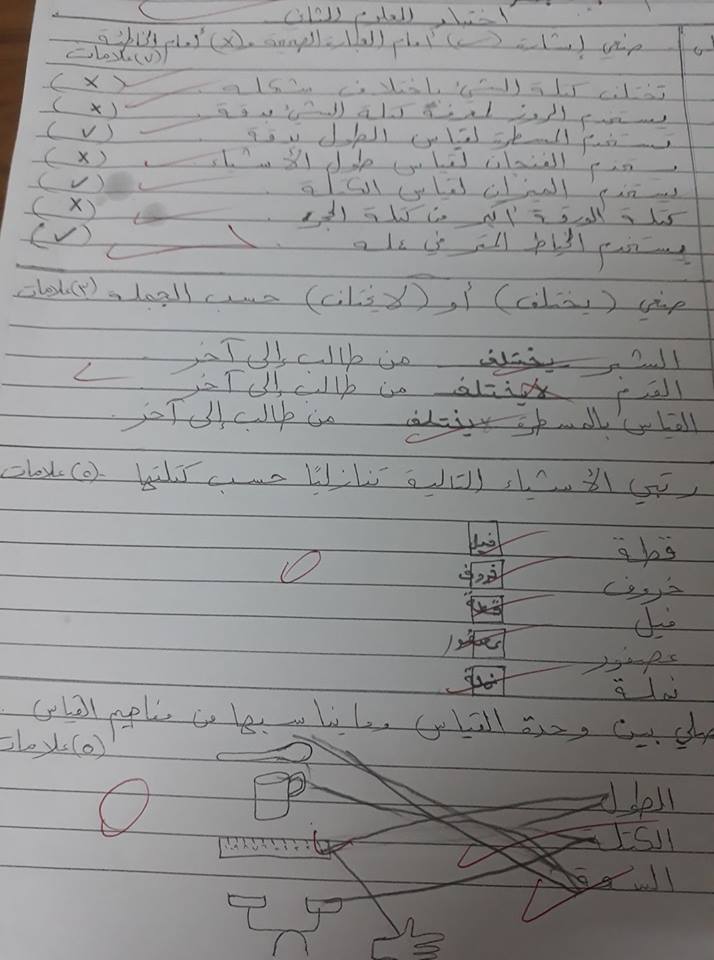 اختبار العلوم الثاني
ضعي إشارة (✓) أمام العبارة الصحيحة و(x) أمام الخاطئة
(٧) علامات
تختلف كتلة الشيء باختلاف شكله (x)
يستخدم الروز لمعرفة كتلة الشيء بدقة (x)
تستخدم المسطرة لقياس الطول بدقة (✓)
يستخدم الفنجان لقياس طول الأشياء (x)
يستخدم الميزان لقياس الكتلة (✓)
كتلة الورقة أكبر من كتلة الحجر (x)
يستخدم الخياط المتر في عمله (✓)
ضعي (يختلف) أو (لا يختلف) حسب الجملة (٣) علامات
الشبر يختلف من طالب إلى آخر
القدم لا يختلف من طالب إلى آخر
القياس بالمسطرة يختلف من طالب إلى آخر.
رتبي الأشياء التالية تنازليًا حسب كتلتها (٥) علامات
قطة فيل
خروف خروف
فيل قطة
عصفور عصفور
نملة نملة
صلي بين وحدة القياس وما يناسبها من مفاهيم القياس.
(٥) علامات
الطول
الكتلة
السعة